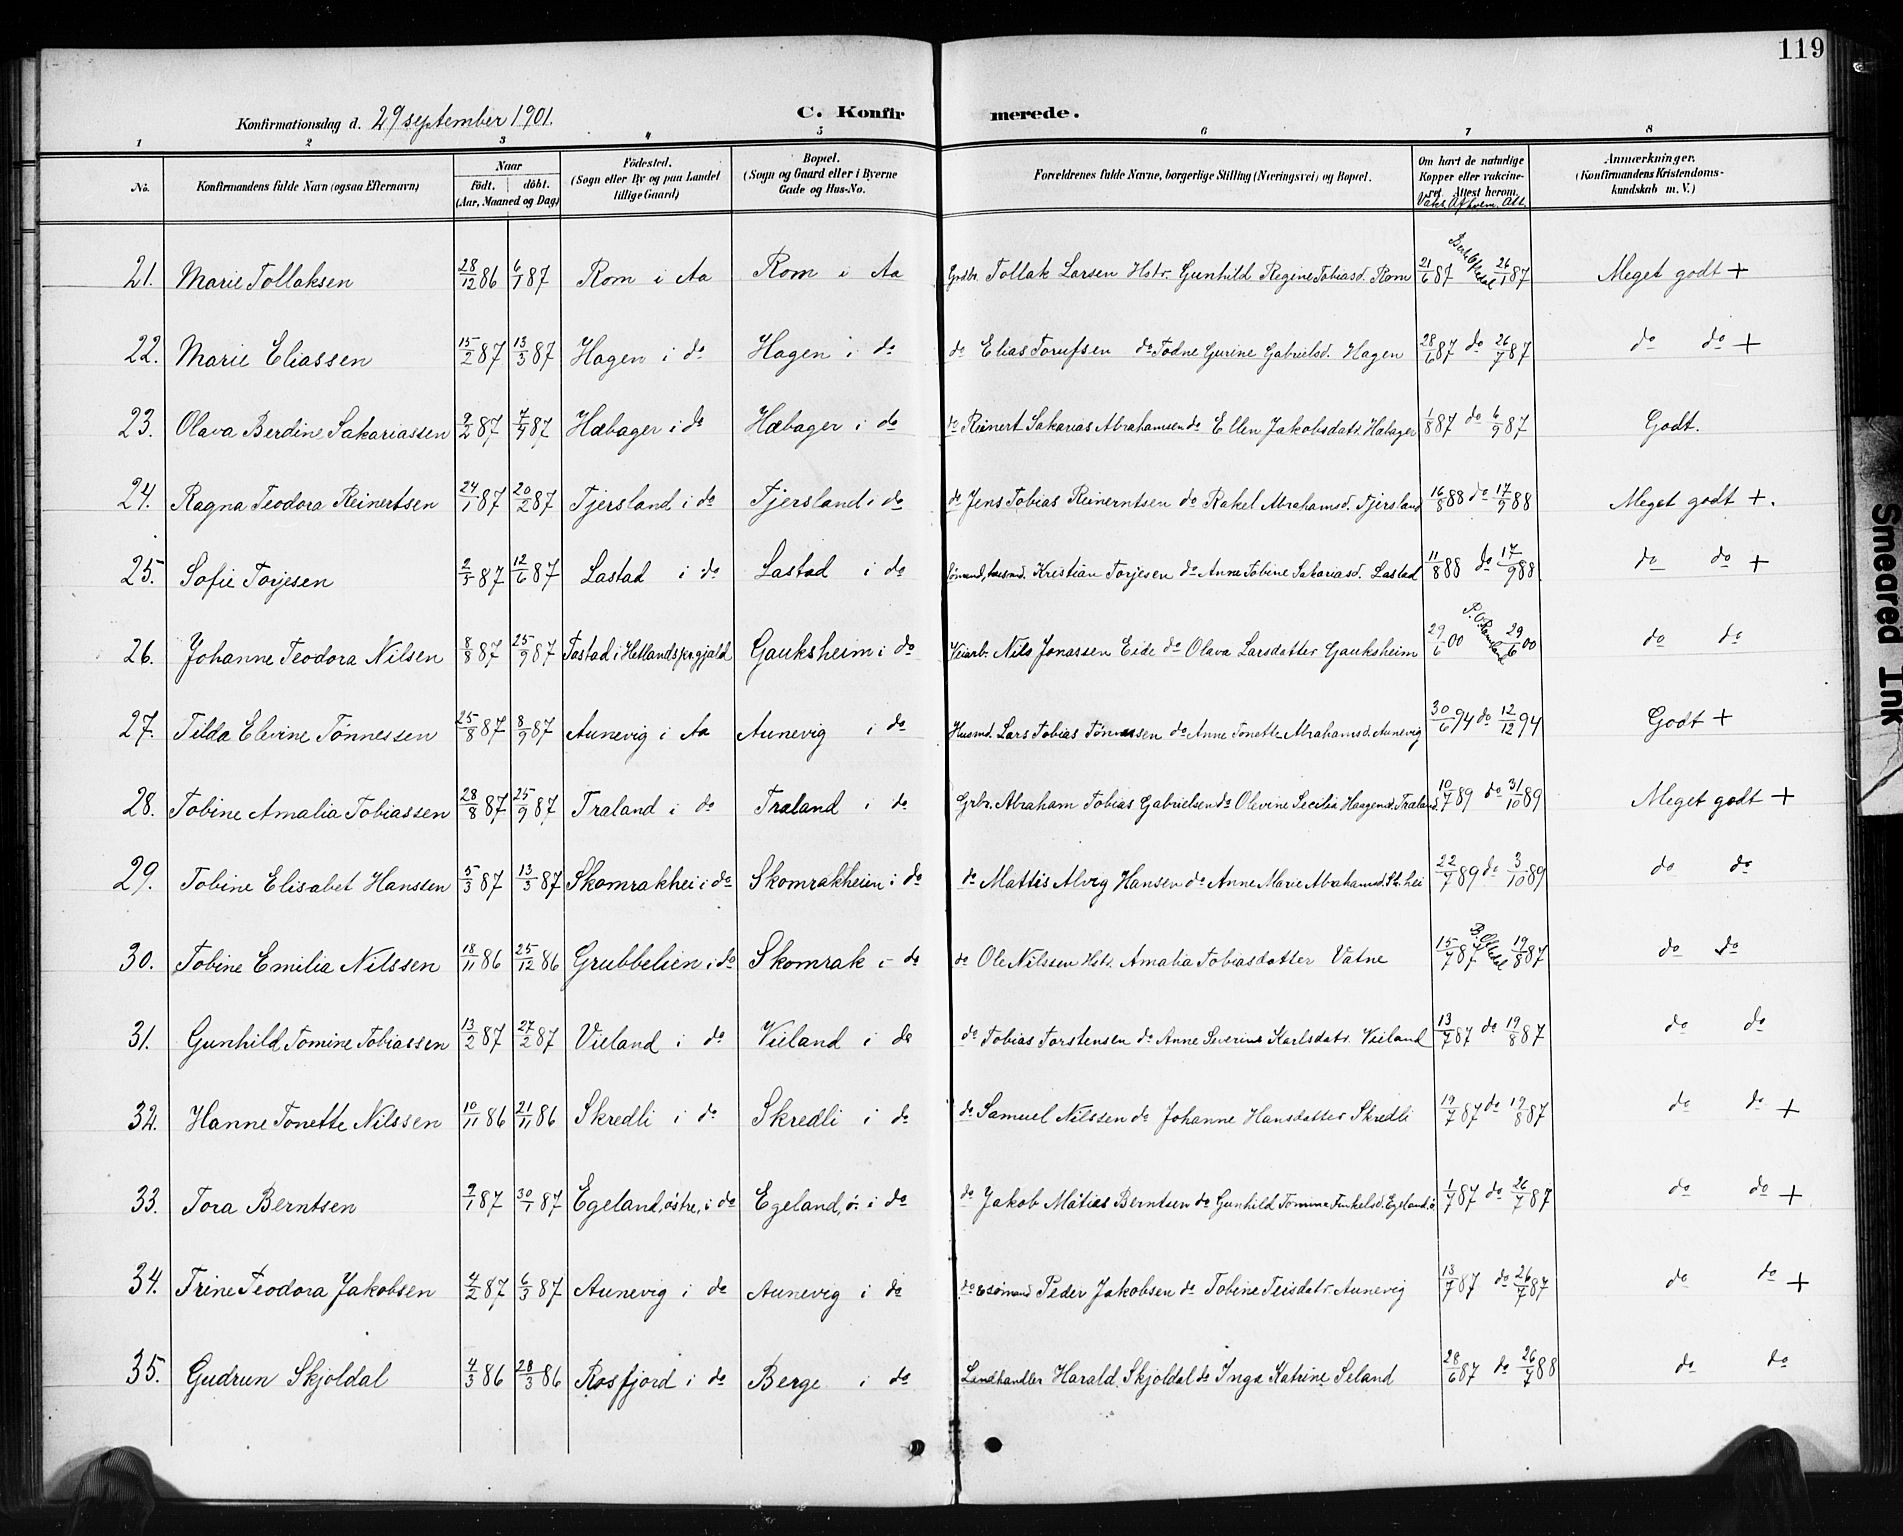 119
Konfirmationsdag d. 29 september 1901. C. Konfirmerede.
1 2 3 4 5 6 7 8
No. Konfirmandens fulde Navn (ogsaa Efternavn) Naar født. døbt. (Aar, Maaned og Dag) Födested. (Sogn eller By og paa Landet tillige Gaard) Bopæl. (Sogn og Gaard eller i Byerne Gade og Hus-No. Forældrenes fulde Navne, borgerlige Stilling (Næringsvei) og Bopæl. Om havt de naturlige Kopper eller vaccineret. Attest herom. Vaks. Af hvem. Att. Anmærkninger. (Konfirmandens Kristendomskundskab m. V.)
21. Marie Tollaksen 28/12 86 6/1 87 Rom i Aa Rom i Aa Grdbr. Tollak Larsen Hstr. Gunhild Regine Tobiasd. Rom 21/6 87 26/7 87 Meget godt +
22. Marie Eliassen 15/2 87 13/3 87 Hagen i do Hagen i do do Elias Torufsen do Todne Gurine Gabrielsd. Hagen 28/6 87 do 26/7 87 do do +
23. Olava Berdine Sakariassen 9/2 87 87 Hæbager i do Hæbager i do do Reinert Sakarias Abrahamsen do Ellen Jakobsdatr. Hæbager 1/8 87 do 6/9 87 Godt.
24. Ragna Teodora Reinertsen 24/1 87 20/2 87 Tjersland i do Tjersland i do do Jens Tobias Reinerntsen do Rakel Abrahamsd. Tjersland 16/8 88 do 17/9 88 Meget godt +.
25. Sofie Torjesen 2/5 87 12/6 87 Lastad i do Lastad i do Sömand, husmd. Kristian Torjesen do Anne Tobine Sakariasd. Lastad 11/8 88 do 17/9 88. do do +
26. Johanne Teodora Nilsen 8/8 87 25/9 87 Tastad i Hetlands pr.gjæld Gauksheim i do Veiarb. Nils Jonassen Eide do Olava Larsdatter Gauksheim 29/6 00 29/6 00 do do
27. Tilda Elevine Tønnessen 25/8 87 8/9 87 Aunevig i Aa Aunevig i do Husmd. Lars Tobias Tønnessen do Anne Tonette Abrahamsd. Aunevig 30/6 94 do 12/12 94 Godt +
28. Tobine Amalia Tobiassen 28/8 87 25/9 87 Traland i do Traland i do Grbr. Abraham Tobias Gabrielsen do Olevine Secilia Haagensd. Traland. 10/7 89 do 31/10 89 Meget godt +
29. Tobine Elisabet Hansten 5/3 87 13/3 87 Skomrakhei i do Skomrakheien i do do Mattis Alvig Hansen do Anne Marie Abrahamsd. Sk. hei 22/7 89 do 3/10 89 do do
30. Tobine Emilia Nilssen 18/11 86 25/12 86 Grubbelien i do Skomrak i do do Ole Nilssen Hstr. Amalia Tobiasdatter Vatne 15/7 87 19/8 87 do do
31. Gunhild Tomine Tobiassen 13/2 87 27/2 87 Vieland i do Vieland i do do Tobias Torstensen do Anne Severine Karlsdatr. Veiland 13/7 87 do 19/8 87 do do
32. Hanne Tonette Nilssen 10/11 86 21/11 86 Skredli i do Skredli i do do Samuel Nilssen do Johanne Hansdatter Skredli 19/7 87 do 19/8 87 do do +
33. Tora Berntsen 9/1 87 30/1 87 Egeland, østre, i do Egeland, ø. i do do Jakob Matias Berntsen do Gunhild Tomine Egeland, ø 1/7 87 do 26/7 87 do do +
34. Trine Teodora Jakobsen 4/2 87 6/3 87 Aunevig i do Aunevig i do do Exsömand Peder Jakobsen do Tobine Teisdatr. Aunevig 13/7 87 do 26/7 87 do do +
35. Gudrun Skjoldal 4/3 86 28/3 86 Rosfjord i do Berge i do Landhandler Harald Skjoldal do Inga Katrine Seland 28/6 87 do 26/7 88 do do
Smeared Ink